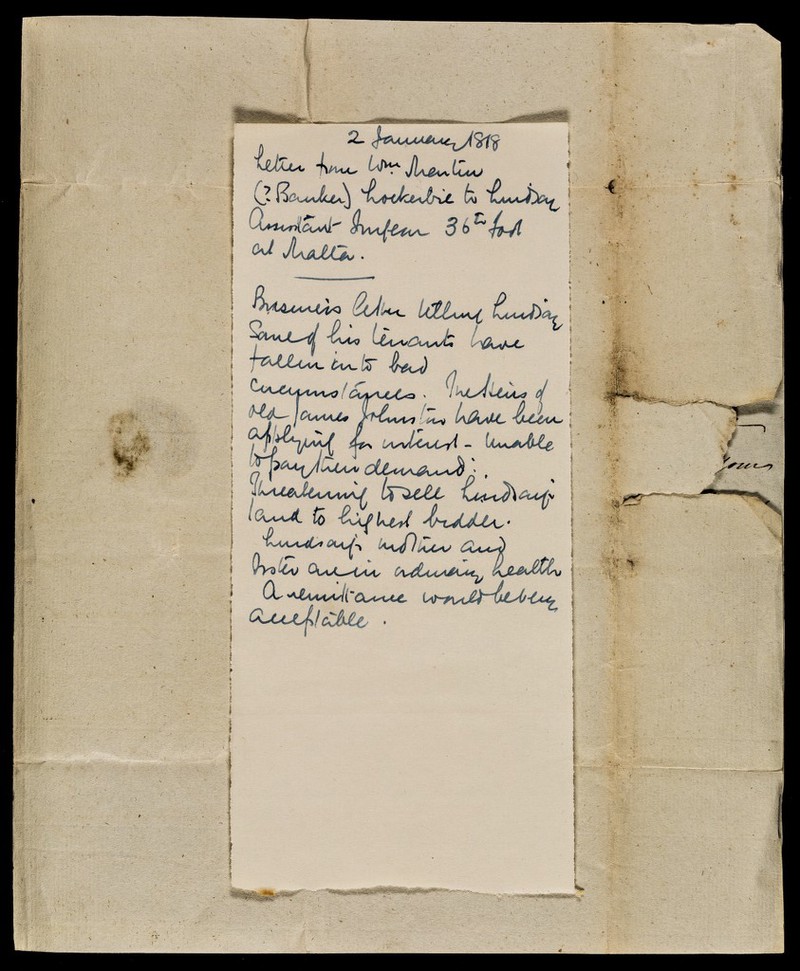 2 January 1818
Letter from Wm Martin
(? Banker) Lockerbie to Lindsay
Assistant Surgeon 36th Foot
at Malta.
Business letter telling Lindsay
Some of his tenants have
fallen into bad
circumstances. The Heirs of
old James Johnston have been
applying for interest - Unable
to pay their demand.
Threatening to sell Lindsay's
land to highest bidder.
Lindsay's mother and
Sister are in ordinary health
A remittance would be very
acceptable.
yours